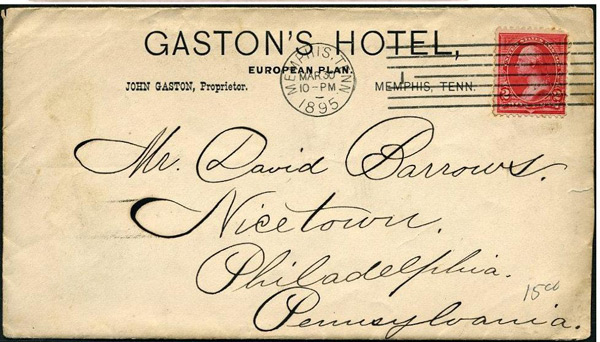 GASTON'S HOTEL,
EUROPEAN PLAN.
JOHN GASTON, Proprietor.
MEMPHIS, TENN.
MEMPHIS, TENN.
MAR 30
10-PM
1895
Mr. David Barrows.
Nicetown.
Philadelphia.
Pennsylvania.
1500